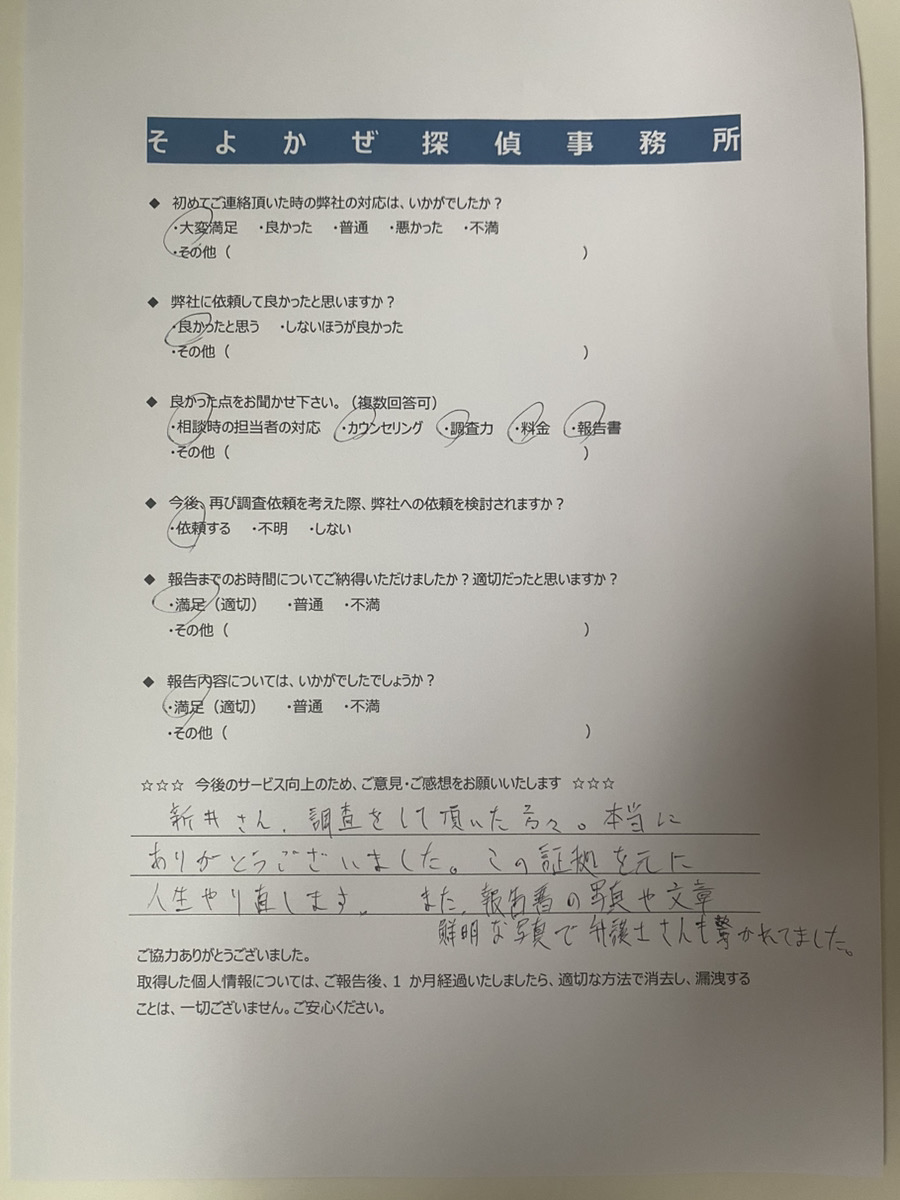 そよかぜ探偵事務所
◆ 初めてご連絡頂いた時の弊社の対応は、いかがでしたか？
・大変満足 ・良かった ・普通 ・悪かった ・不満
・その他（ ）
◆ 弊社に依頼して良かったと思いますか？
・良かったと思う ・しないほうが良かった
・その他（ ）
◆ 良かった点をお聞かせ下さい。（複数回答可）
・相談時の担当者の対応 ・カウンセリング ・調査力 ・料金 ・報告書
・その他（ ）
◆ 今後、再び調査依頼を考えた際、弊社への依頼を検討されますか？
・依頼する ・不明 ・しない
◆ 報告までのお時間についてご納得いただけましたか？適切だったと思いますか？
・満足（適切） ・普通 ・不満
・その他（ ）
◆ 報告内容については、いかがでしたでしょうか？
・満足（適切） ・普通 ・不満
・その他（ ）
☆☆☆ 今後のサービス向上のため、ご意見・ご感想をお願いいたします ☆☆☆
新井さん、調査をして頂いた方々。本当に
ありがとうございました。この証拠を元に
人生やり直します。 また、報告書の写真や文章
鮮明な写真で弁護士さんも驚かれてました。
ご協力ありがとうございました。
取得した個人情報については、ご報告後、1 か月経過いたしましたら、適切な方法で消去し、漏洩する
ことは、一切ございません。ご安心ください。